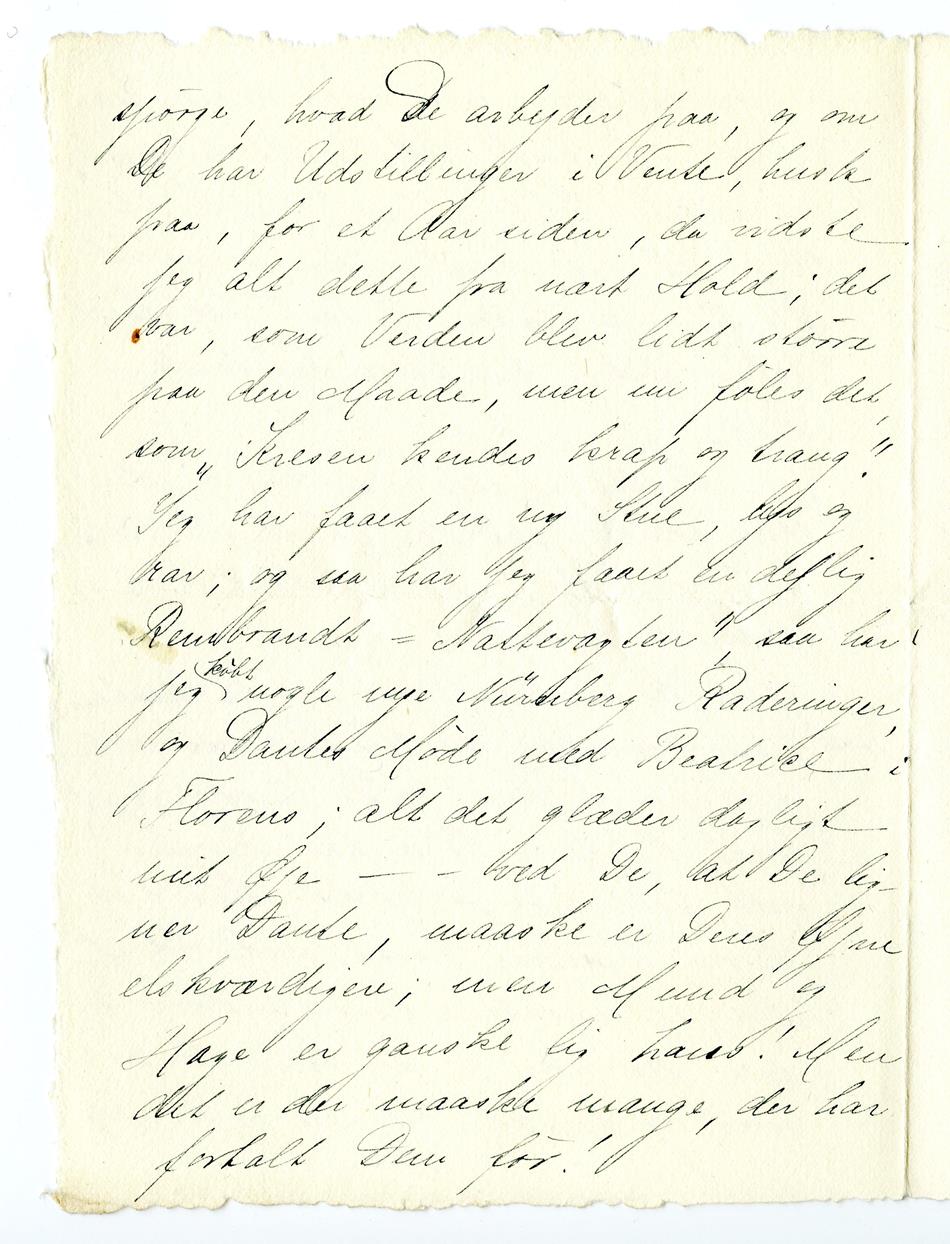 spörge, hvad De arbejder paa, og om
De har Udstillinger i Vente, husk
paa, for et Aar siden, da vidste
jeg alt dette fra nært Hold; det
var, som Verden blev lidt större
paa den Maade, men nu föles det,
som „Kresen kendes knap og trang"!
Jeg har faaet en ny Stue, lys og
rar; og saa har jeg faaet en dejlig
Rembrandt = Nattevagten", saa har
jeg köbt nogle nye Nürnberg Raderinger,
og Dantes Möde med Beatrice i
Florens; alt det glæder dagligt
mit Øje — - - ved De, at De lig-
ner Dante, maaske er Deres Øjne
elskværdigere; men Mund og
Hage er ganske lig hans! Men
det er der maaske mange, der har
fortalt Dem för!